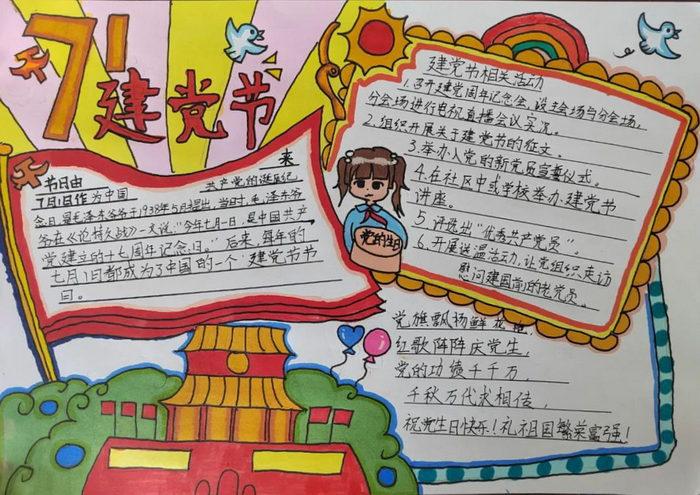 71
建党节
节日由来
7月1日作为中国共产党的诞辰纪
念日,是毛泽东爷爷于1938年5月提出,当时,毛泽东爷
爷在《论持久战》一文说:“今年七月一日,是中国共产
党建立的十七周年纪念日。”后来,每年的
七月1日都成为了中国的一个建党节节
日。
建党节相关活动
1.召开建党周年纪念会,设主会场与分会场,
分会场进行电视直播会议实况。
2.组织开展关于建党节的征文。
3.举办入党的新党员宣誓仪式。
4.在社区中或学校举办建党节
讲座。
5.评选出“优秀共产党员”。
6.开展送温活动,让党组织走访
慰问建国前的老党员。
党的生日
党旗飘扬鲜花
红歌阵阵庆党生,
党的功绩千千万,
千秋万代永相传,
祝党生日快乐!礼祖国繁荣富强!